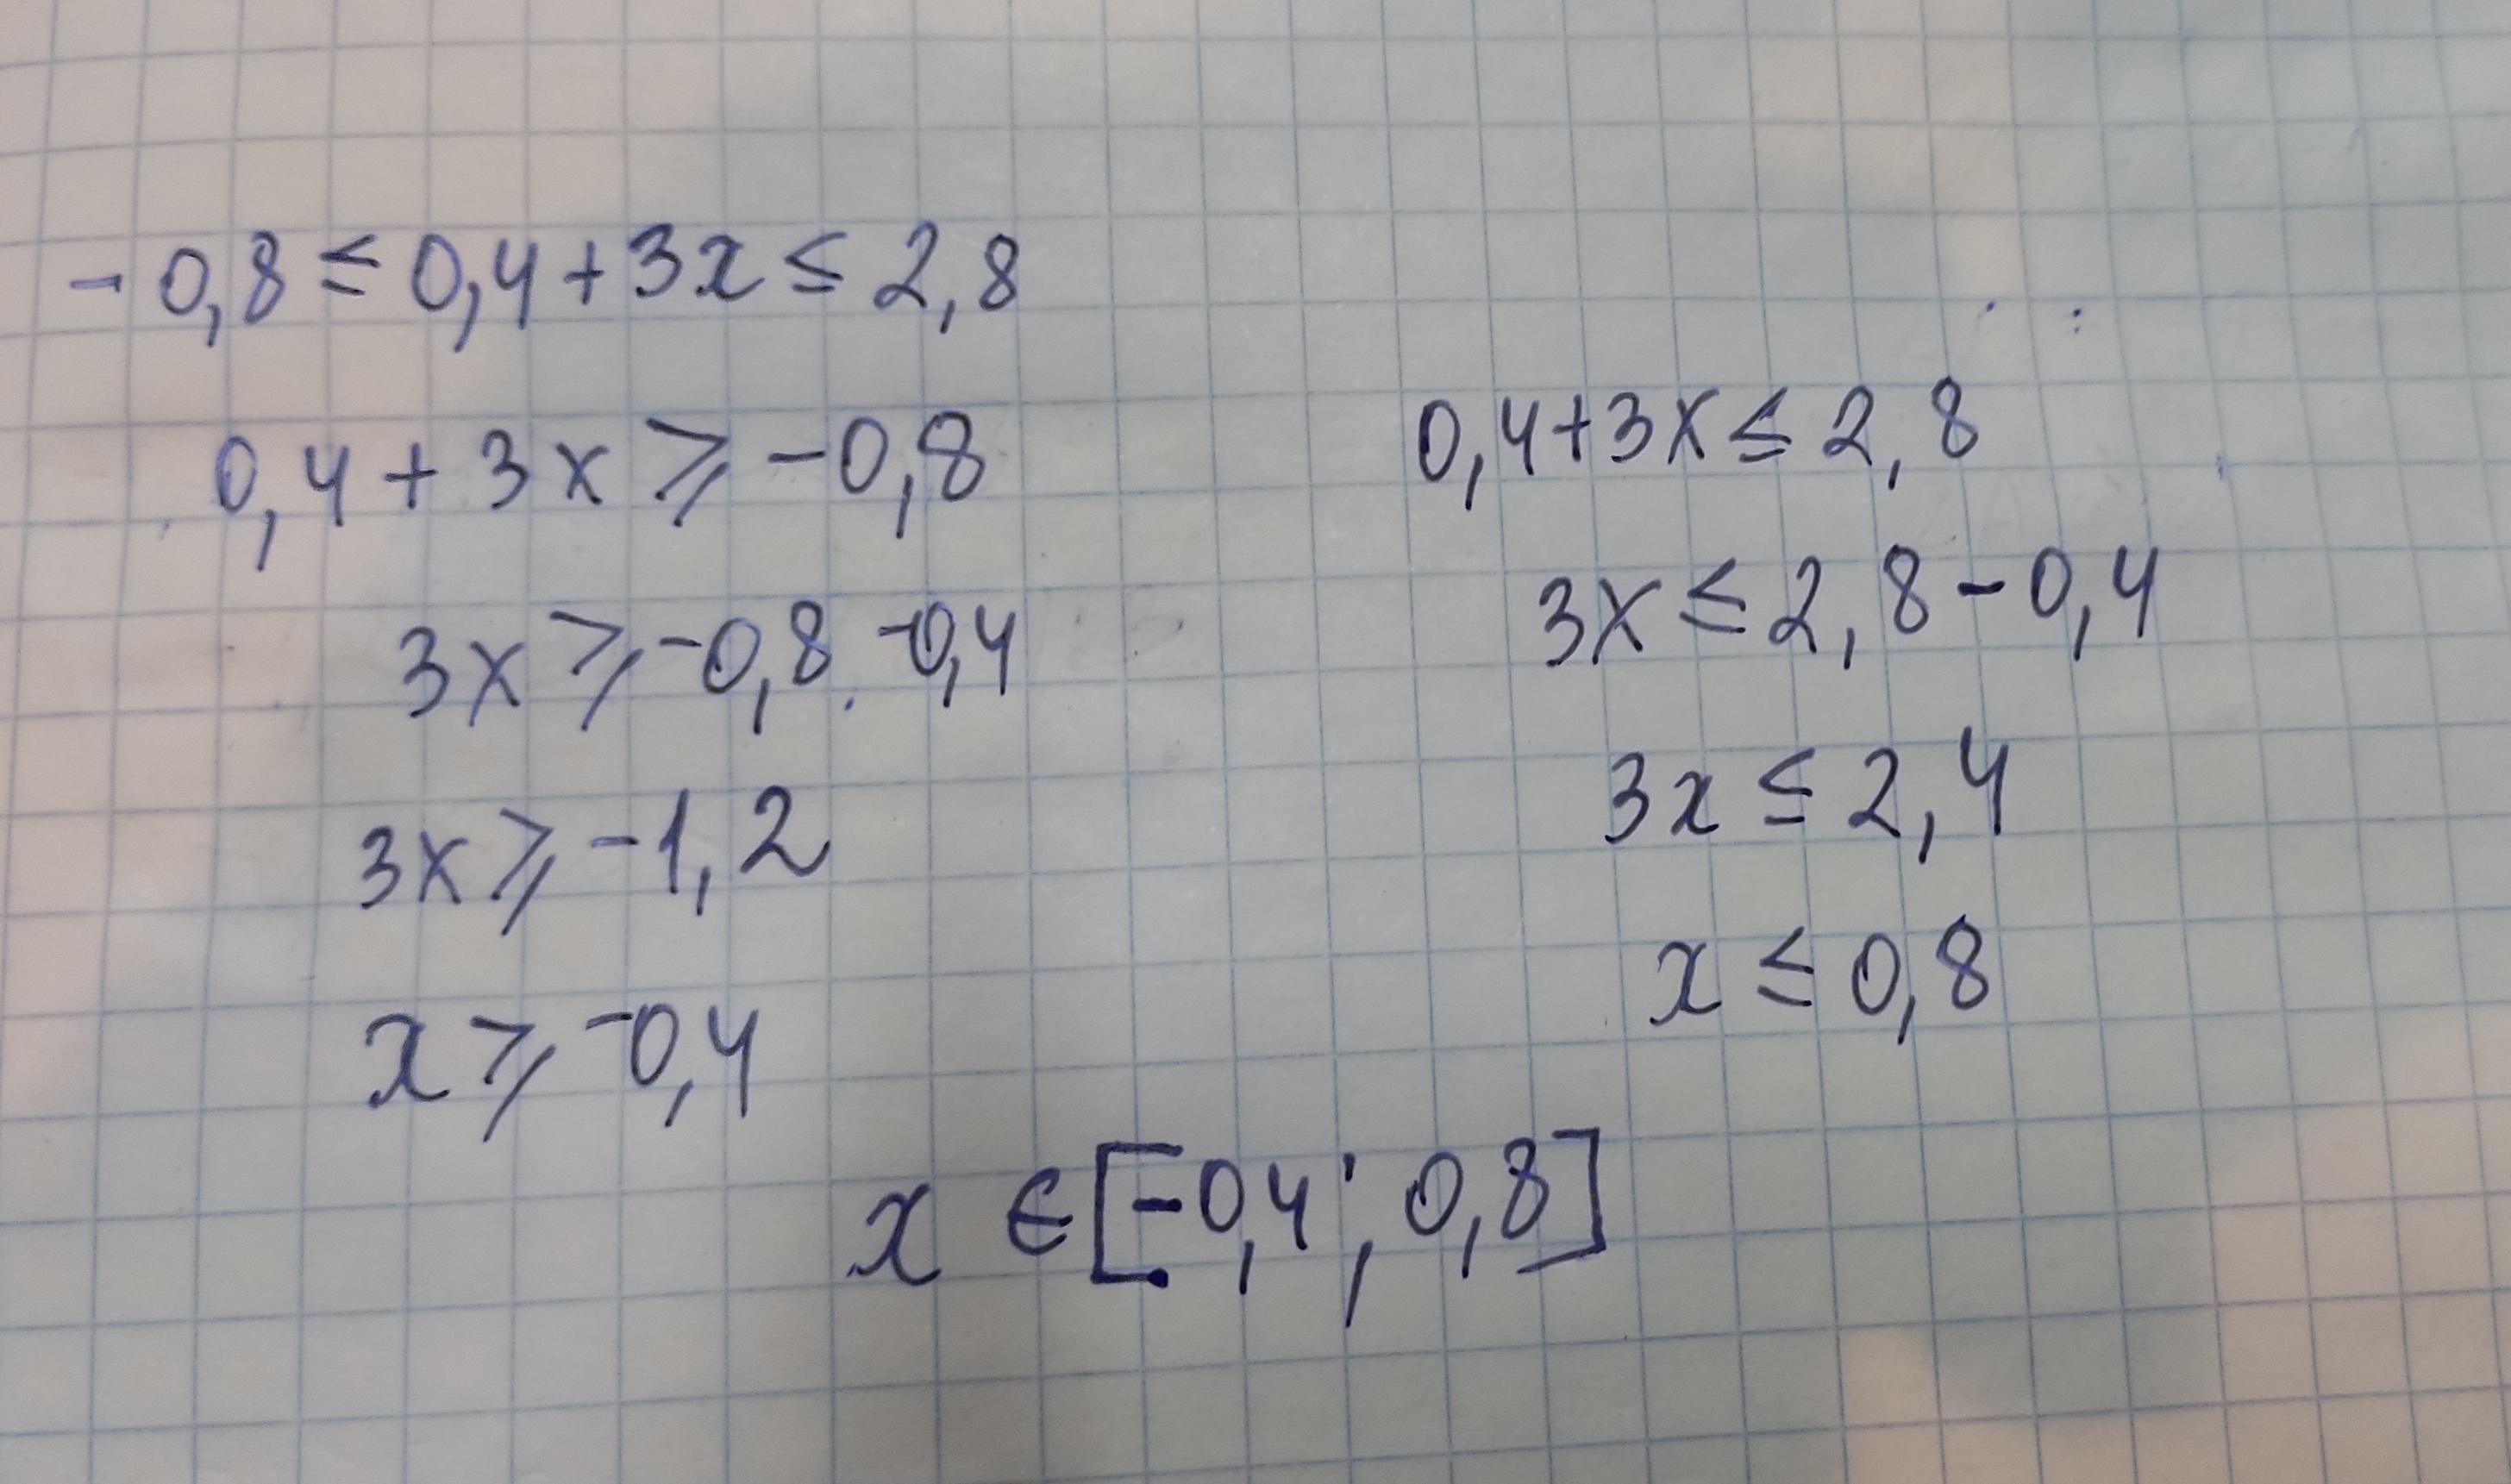 -0,8 ≤ 0,4 + 3x ≤ 2,8
0,4 + 3x ⩾ -0,8
3x ⩾ -0,8 -0,4
3x ⩾ -1,2
x ⩾ -0,4
0,4+3x ≤ 2,8
3x ≤ 2,8 - 0,4
3x ≤ 2,4
x ≤ 0,8
x ∈ [-0,4 ; 0,8]